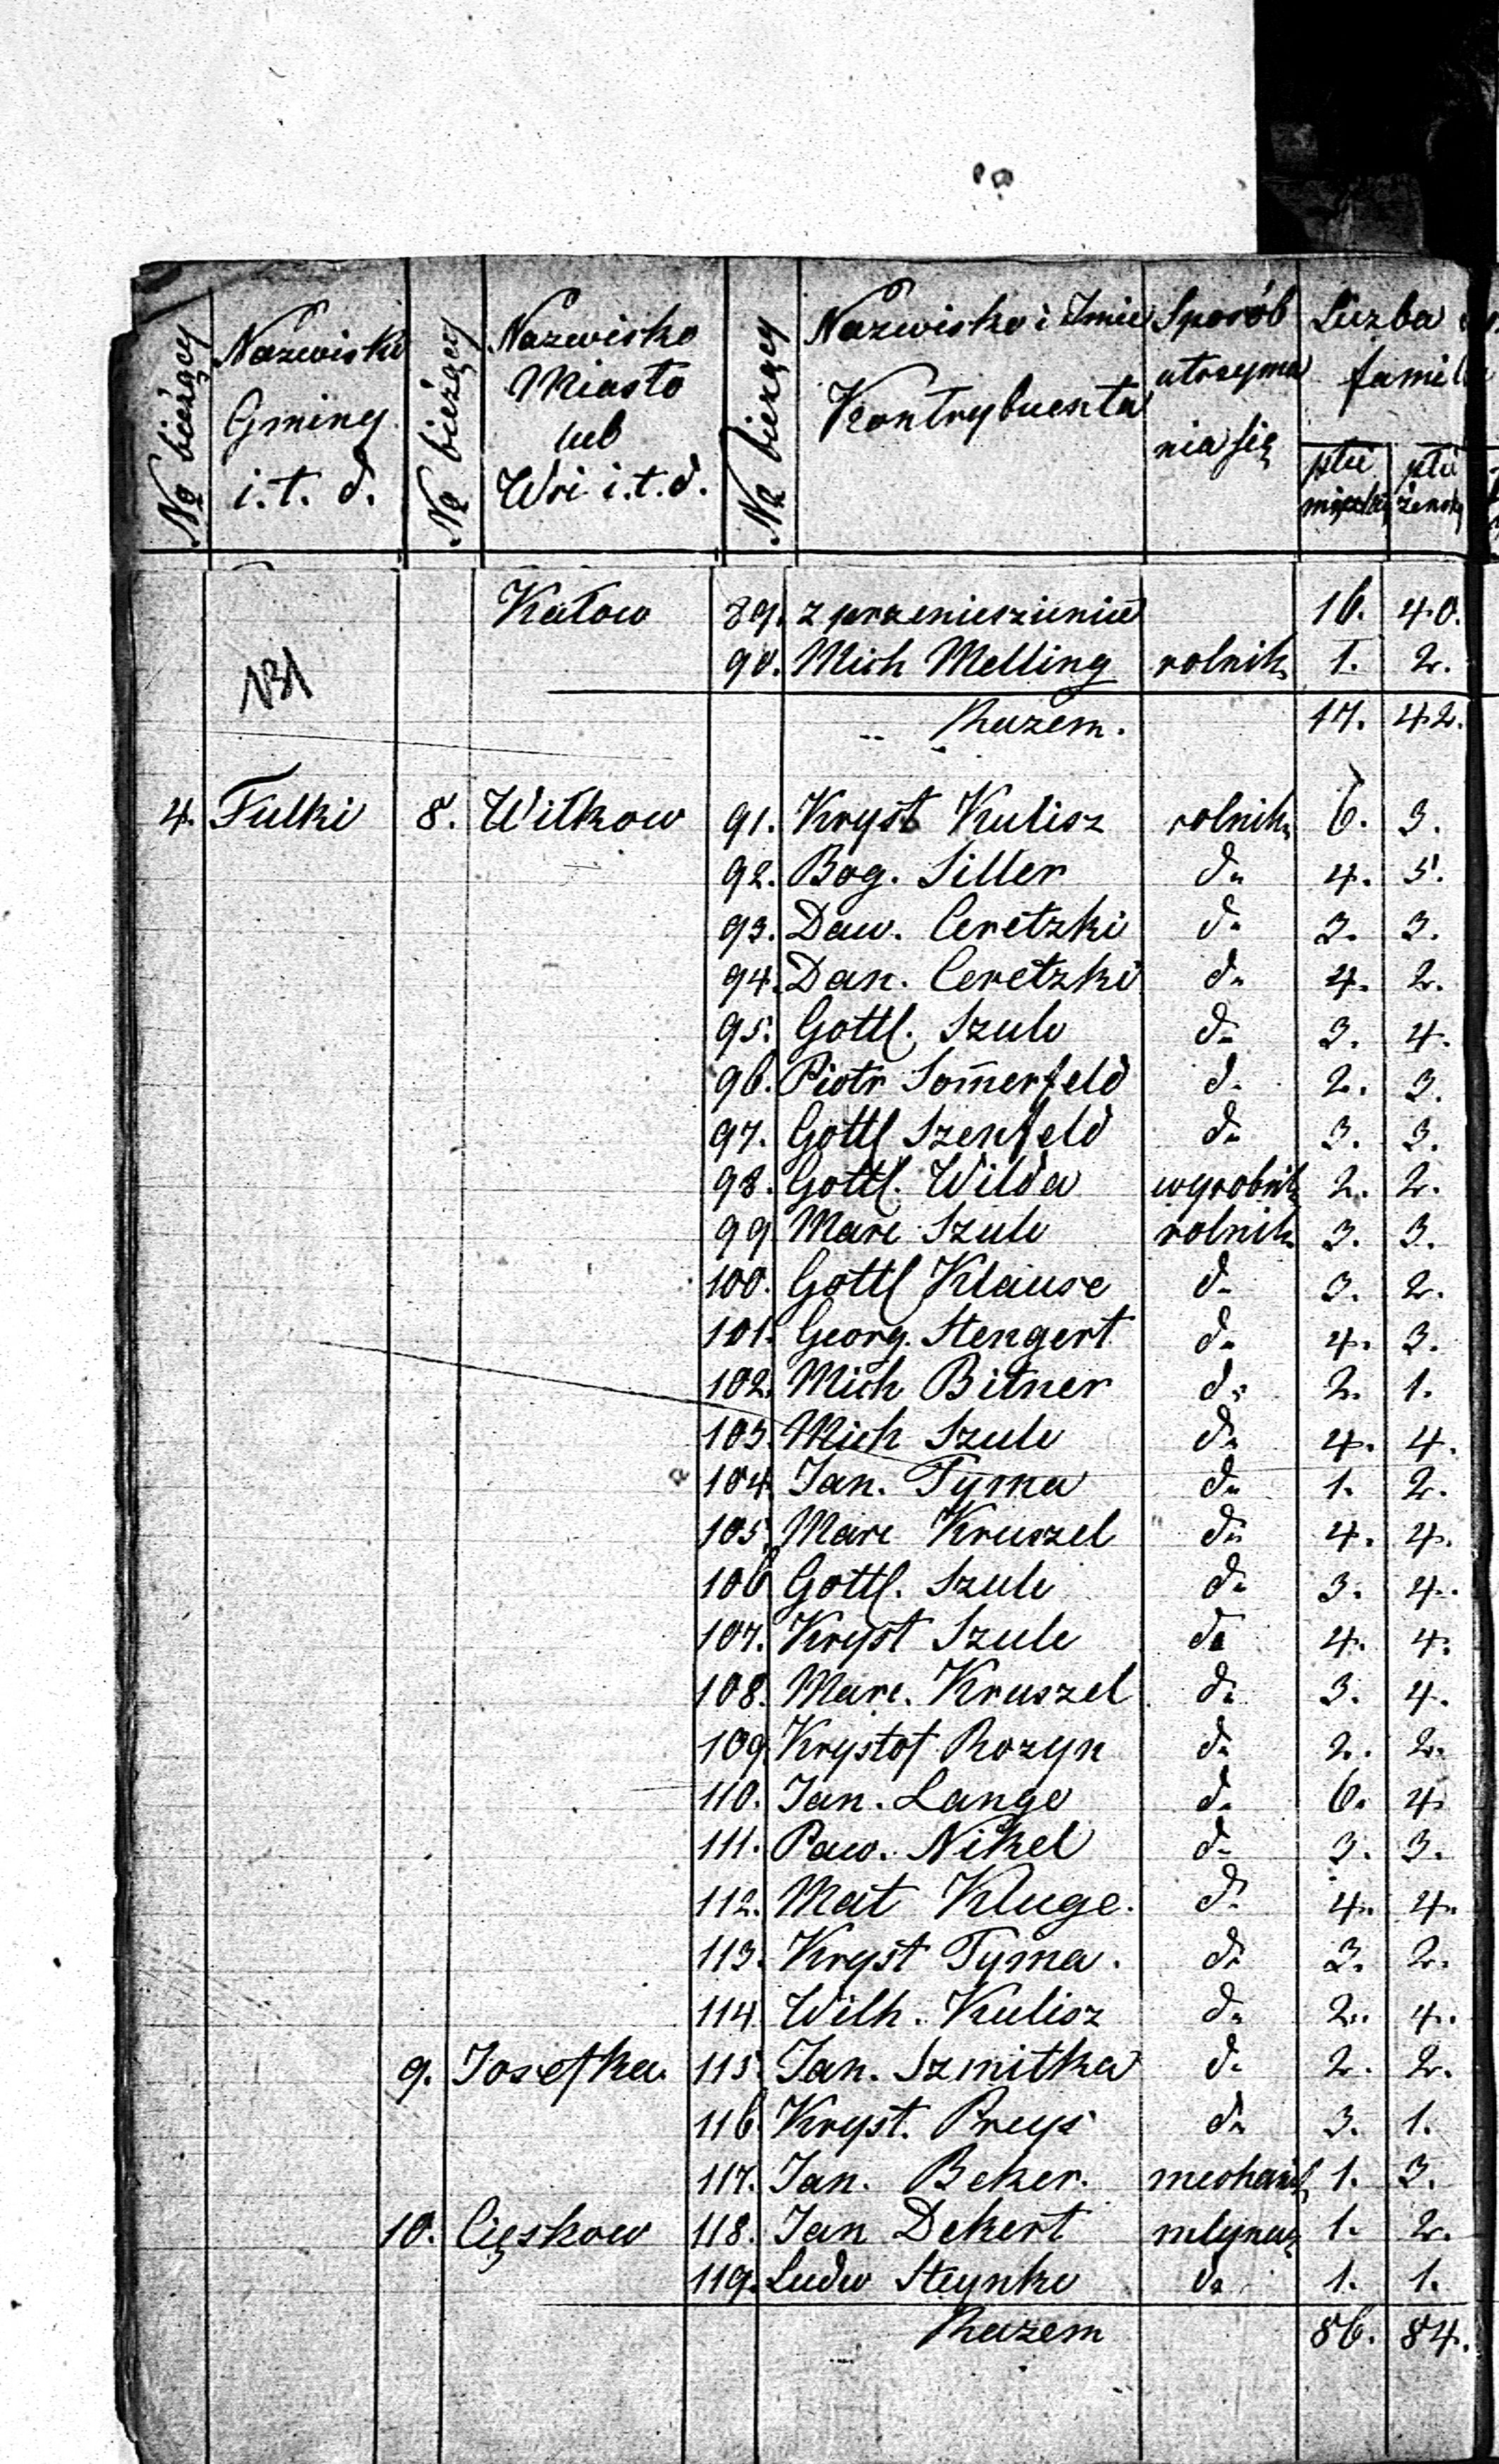 No bieżący Nazwisko Gminy i.t.d. No bieżący Nazwisko Miasta lub Wsi i.t.d. No bieżący Nazwisko i Imie Kontrybuenta Sposób utrzymania się Liczba famil
płci męzkiej płci żeńsk
Kałow 89. z przeniesienia 16. 40.
131
90. Mich Melling rolnik 1. 2.
Razem. 17. 42.
4. Fulki 8. Witkow 91. Kryst Kulisz rolnik 6. 3.
92. Bog. Siller do 4. 5.
93. Daw. Ceretzki do 3. 3.
94. Dan. Ceretzki do 4. 2.
95. Gottl. Szulc do 3. 4.
96. Piotr Som̄erfeld do 2. 3.
97. Gottl Szenfeld do 3. 3.
98. Gottl. Wilda wyrobnik 2. 2.
99 Marc Szulc rolnik 3. 3.
100. Gottl Klause do 3. 2.
101. Georg. Stengert do 4. 3.
102. Mich Bitner do 2. 1.
103. Mich Szulc do 4. 4.
104 Jan. Tyma do 1. 2.
105. Marc Kruszel do 4. 4.
106 Gottl. Szulc do 3. 4.
107. Kryst Szulc do 4. 4.
108. Marc. Kruszel do 3. 4.
109 Krystof Rozyn do 2. 2.
110. Jan. Lange do 6. 4.
111. Paw. Nikel do 3. 3.
112. Mat Kluge. do 4. 4.
113. Kryst Tyma. do 3. 2.
114 Wilh. Kulisz do 2. 4.
9. Josefka. 115. Jan. Szmitka do 2. 2.
116. Kryst. Preys do 3. 1.
117. Jan. Beker. mechanik 1. 3.
10. Cięskow 118. Jan Dekert młynarz 1. 2.
119. Ludw Steynke do 1. 1.
Razem 86. 84.